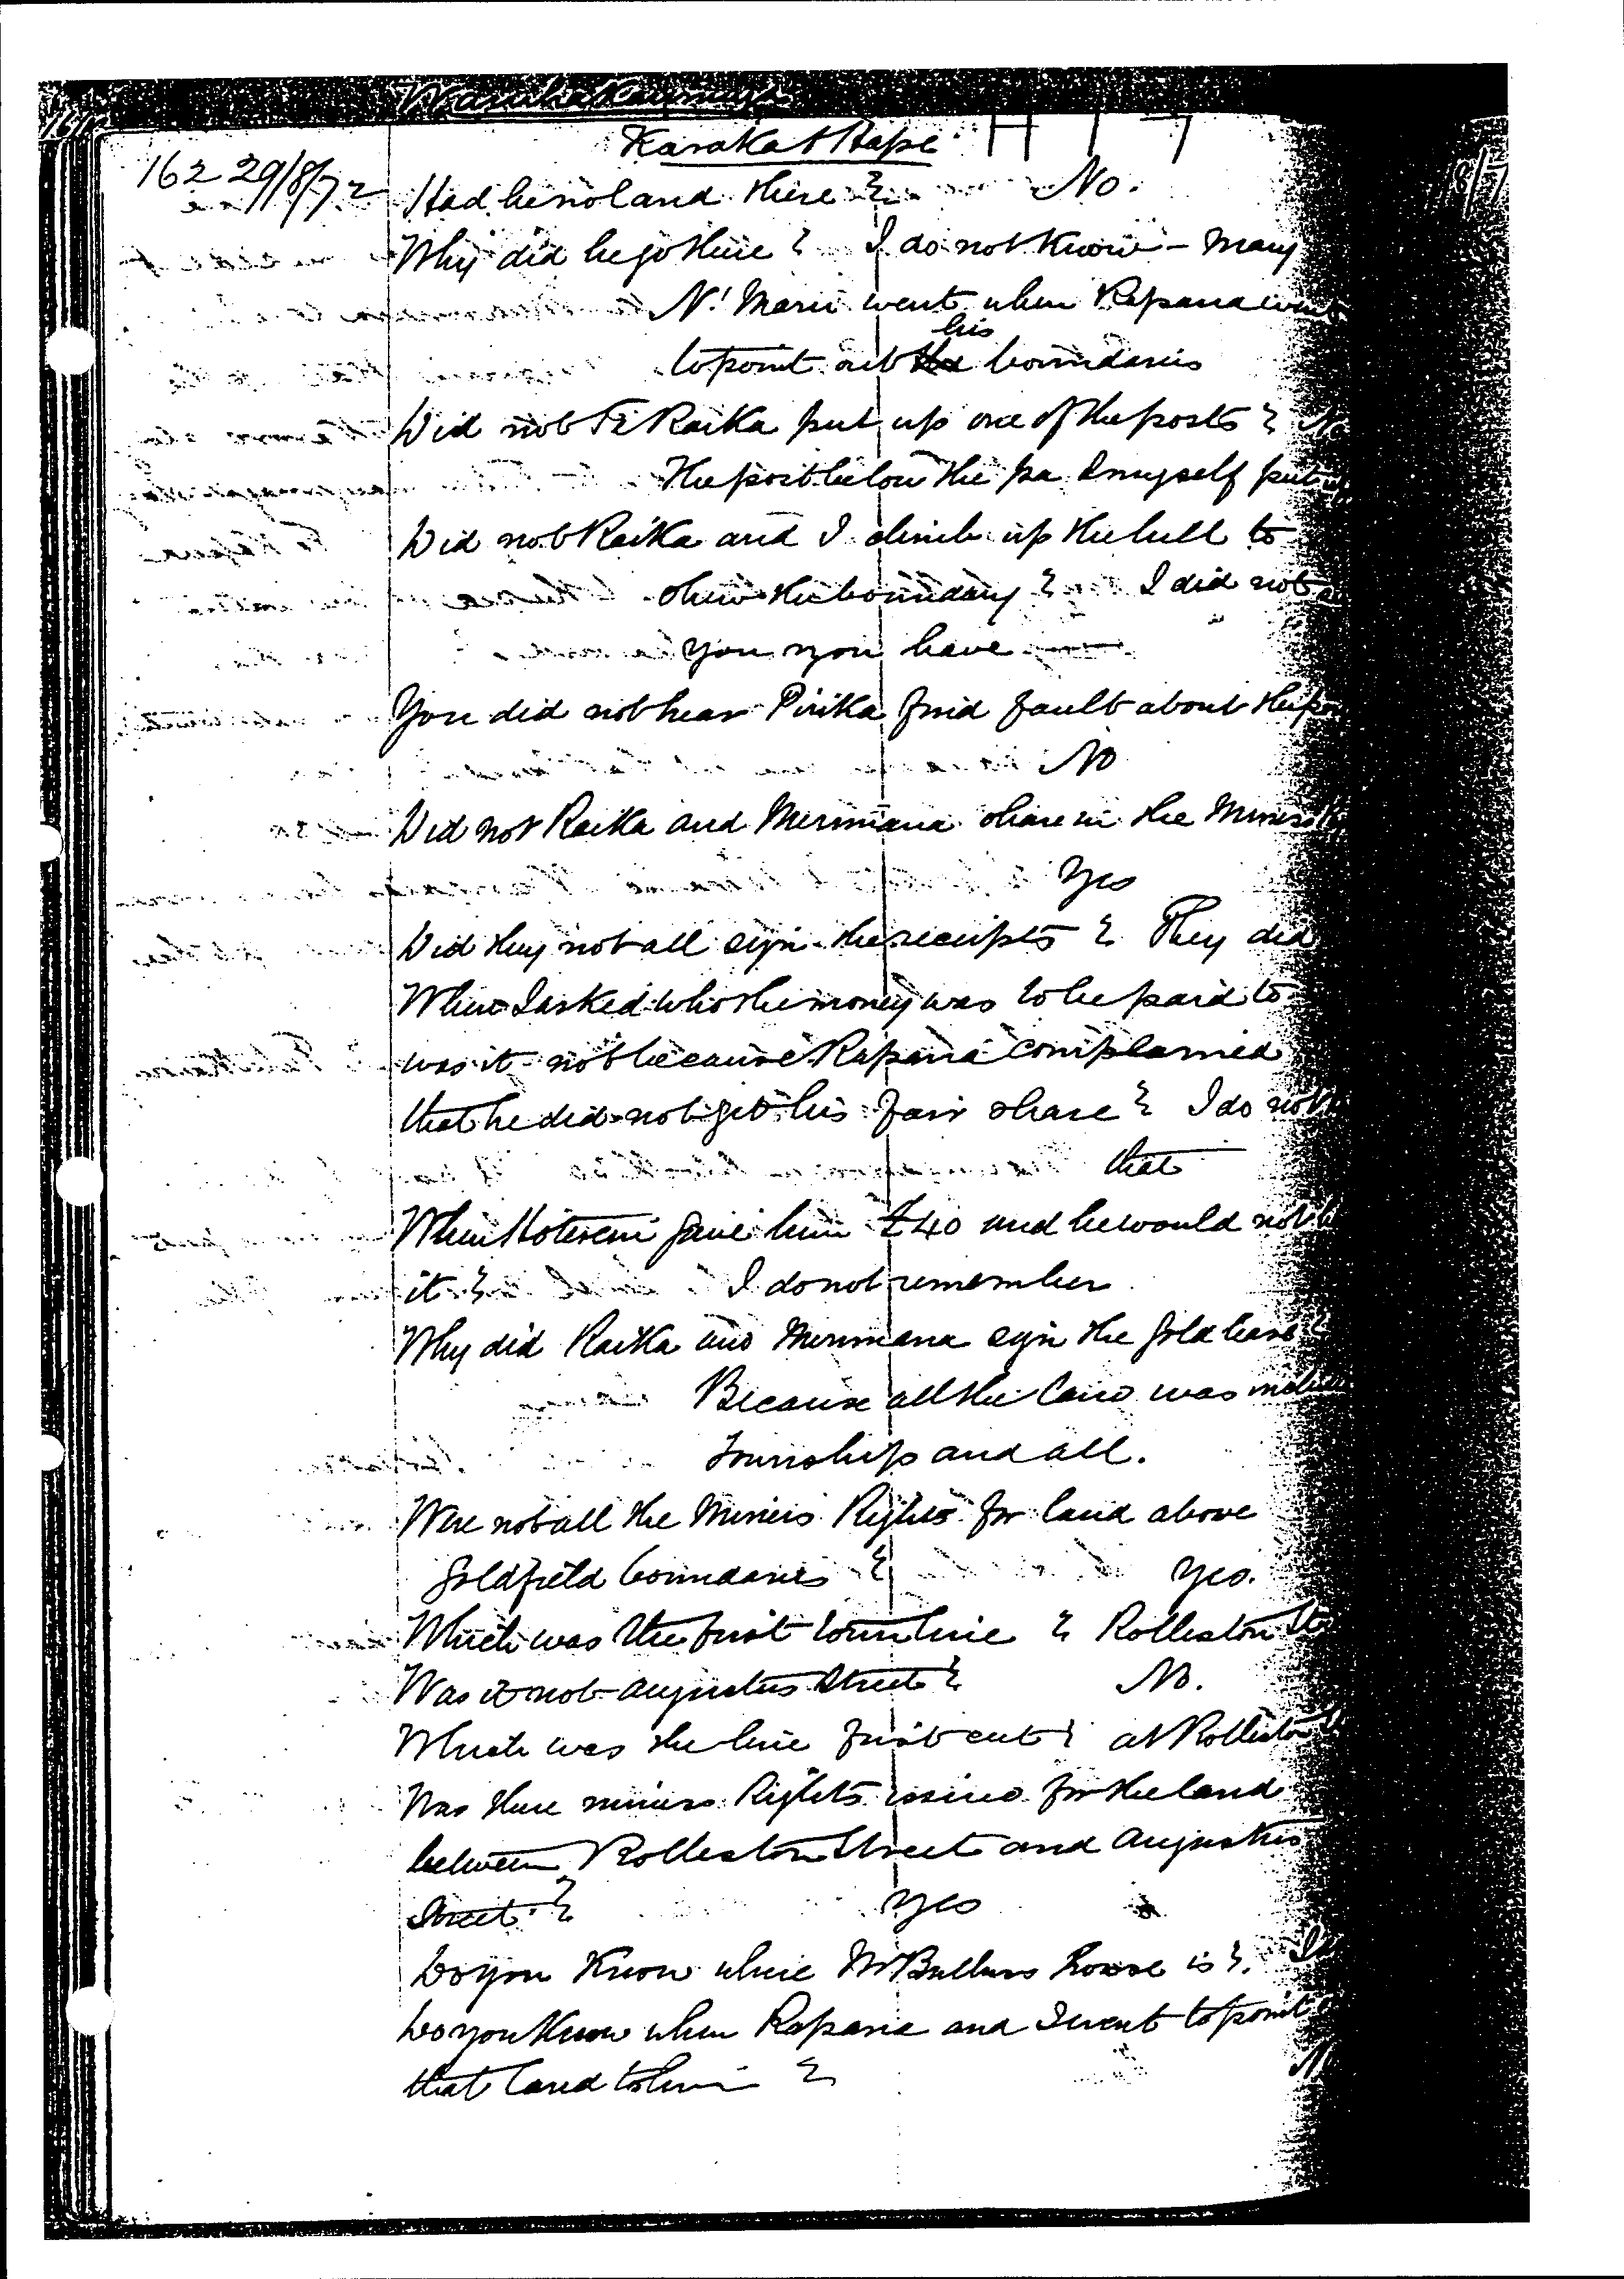 Karaka & Hape H 17
162 29/8/72
Had he no land there? No.
Why did he go there? I do not know - Many
N! Maru went when Rapana went
his
to point out the boundaries
Did not Te Raika put up one of the posts?
The post below the pa I myself put
Did not Raika and I climb up the hill to
show the boundary? I did not
you you have
You did not hear Pirika find fault about the
No
Did not Raika and Merimana share in the Miners
Yes
Did they not all sign the receipts? They did
When I asked who the money was to be paid to
was it not because Rapana complained
that he did not get his fair share? I do not
that
When Hotereni gave him £40 and he would not
it? I do not remember
Why did Raika and Merimana sign the gold lease?
Because all the land was
Township and all.
Were not all the Miners Rights for land above
goldfield boundaries? Yes.
Which was the first town line? Rolleston St
Was it not Augustus Street? No.
Which was the line first cut? at Rolleston
Was there miners Rights issued for the land
between Rolleston Street and Augustus
Street? Yes
Do you know where Mr Bullens house is?
Do you know when Rapana and I went to point
that land to him?